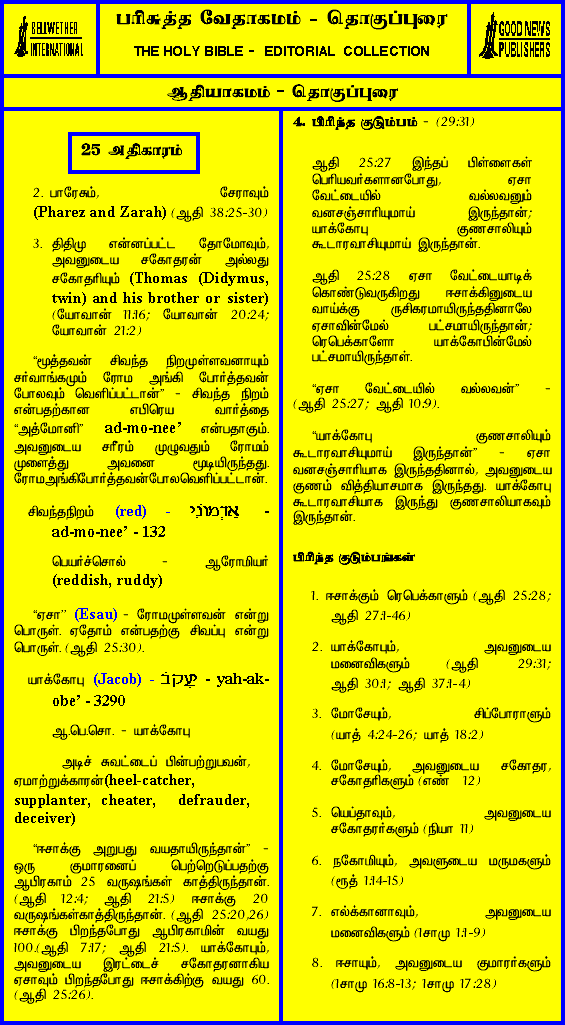 BELLWETHER
INTERNATIONAL
பரிசுத்த வேதாகமம் - தொகுப்புரை
THE HOLY BIBLE - EDITORIAL COLLECTION
GOOD NEWS
PUBLISHERS
ஆதியாகமம் - தொகுப்புரை
25 அதிகாரம்
2. பாரேசும், சேராவும்
(Pharez and Zarah) (ஆதி 38:25-30)
3. திதிமு என்னப்பட்ட தோமோவும்,
அவனுடைய சகோதரன் அல்லது
சகோதரியும் (Thomas (Didymus,
twin) and his brother or sister)
(யோவான் 11:16; யோவான் 20:24;
யோவான் 21:2)
“மூத்தவன் சிவந்த நிறமுள்ளவனாயும்
சர்வாங்கமும் ரோம அங்கி போர்த்தவன்
போலவும் வெளிப்பட்டான்” - சிவந்த நிறம்
என்பதற்கான எபிரெய வார்த்தை
“அத்மோனி” ad-mo-nee’ என்பதாகும்.
அவனுடைய சரீரம் முழுவதும் ரோமம்
முளைத்து அவனை மூடியிருந்தது.
ரோமஅங்கிபோர்த்தவன்போலவெளிப்பட்டான்.
சிவந்தநிறம் (red) - אַדְמֹנִי -
ad-mo-nee’ - 132
பெயர்ச்சொல் - ஆரோமியர்
(reddish, ruddy)
“ஏசா” (Esau) - ரோமமுள்ளவன் என்று
பொருள். ஏதோம் என்பதற்கு சிவப்பு என்று
பொருள். (ஆதி 25:30).
யாக்கோபு (Jacob) - יַעֲקֹב - yah-ak-
obe’ - 3290
ஆ.பெ.சொ. - யாக்கோபு
அடிச் சுவட்டைப் பின்பற்றுபவன்,
ஏமாற்றுக்காரன்(heel-catcher,
supplanter, cheater, defrauder,
deceiver)
“ஈசாக்கு அறுபது வயதாயிருந்தான்” -
ஒரு குமாரனைப் பெற்றெடுப்பதற்கு
ஆபிரகாம் 25 வருஷங்கள் காத்திருந்தான்.
(ஆதி 12:4; ஆதி 21:5) ஈசாக்கு 20
வருஷங்கள்காத்திருந்தான். (ஆதி 25:20,26)
ஈசாக்கு பிறந்தபோது ஆபிரகாமின் வயது
100.(ஆதி 7:17; ஆதி 21:5). யாக்கோபும்,
அவனுடைய இரட்டைச் சகோதரனாகிய
ஏசாவும் பிறந்தபோது ஈசாக்கிற்கு வயது 60.
(ஆதி 25:26).
4. பிரிந்த குடும்பம் - (29:31)
ஆதி 25:27 இந்தப் பிள்ளைகள்
பெரியவர்களானபோது, ஏசா
வேட்டையில் வல்லவனும்
வனசஞ்சாரியுமாய் இருந்தான்;
யாக்கோபு குணசாலியும்
கூடாரவாசியுமாய் இருந்தான்.
ஆதி 25:28 ஏசா வேட்டையாடிக்
கொண்டுவருகிறது ஈசாக்கினுடைய
வாய்க்கு ருசிகரமாயிருந்ததினாலே
ஏசாவின்மேல் பட்சமாயிருந்தான்;
ரெபெக்காளோ யாக்கோபின்மேல்
பட்சமாயிருந்தாள்.
“ஏசா வேட்டையில் வல்லவன்” -
(ஆதி 25:27; ஆதி 10:9).
“யாக்கோபு குணசாலியும்
கூடாரவாசியுமாய் இருந்தான்” - ஏசா
வனசஞ்சாரியாக இருந்ததினால், அவனுடைய
குணம் வித்தியாசமாக இருந்தது. யாக்கோபு
கூடாரவாசியாக இருந்து குணசாலியாகவும்
இருந்தான்.
பிரிந்த குடும்பங்கள்
1. ஈசாக்கும் ரெபெக்காளும் (ஆதி 25:28;
ஆதி 27:1-46)
2. யாக்கோபும், அவனுடைய
மனைவிகளும் (ஆதி 29:31;
ஆதி 30:1; ஆதி 37:1-4)
3. மோசேயும், சிப்போராளும்
(யாத் 4:24-26; யாத் 18:2)
4. மோசேயும், அவனுடைய சகோதர,
சகோதரிகளும் (எண் 12)
5. யெப்தாவும், அவனுடைய
சகோதரர்களும் (நியா 11)
6. நகோமியும், அவளுடைய மருமகளும்
(ரூத் 1:14-15)
7. எல்க்கானாவும், அவனுடைய
மனைவிகளும் (1சாமு 1:1-9)
8. ஈசாயும், அவனுடைய குமாரர்களும்
(1சாமு 16:8-13; 1சாமு 17:28)